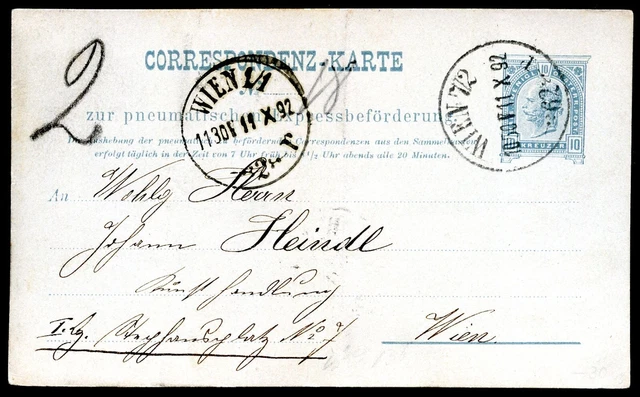 2
CORRESPONDENZ-KARTE
WIEN 1/1
11 30 V 11 X 92
WIEN 72
10 50 V 11 X 92
10
KREUZER
zur pneumatischen Expressbeförderung
Die Aushebung der pneumatisch zu befördernden Correspondenzen aus den Sammelkästen
erfolgt täglich in der Zeit von 7 Uhr früh bis 1/2 Uhr abends alle 20 Minuten.
An Wohlg Herrn
Johann Heindl
Kunsthandlung
I. Bg. Stephansplatz No 7
Wien